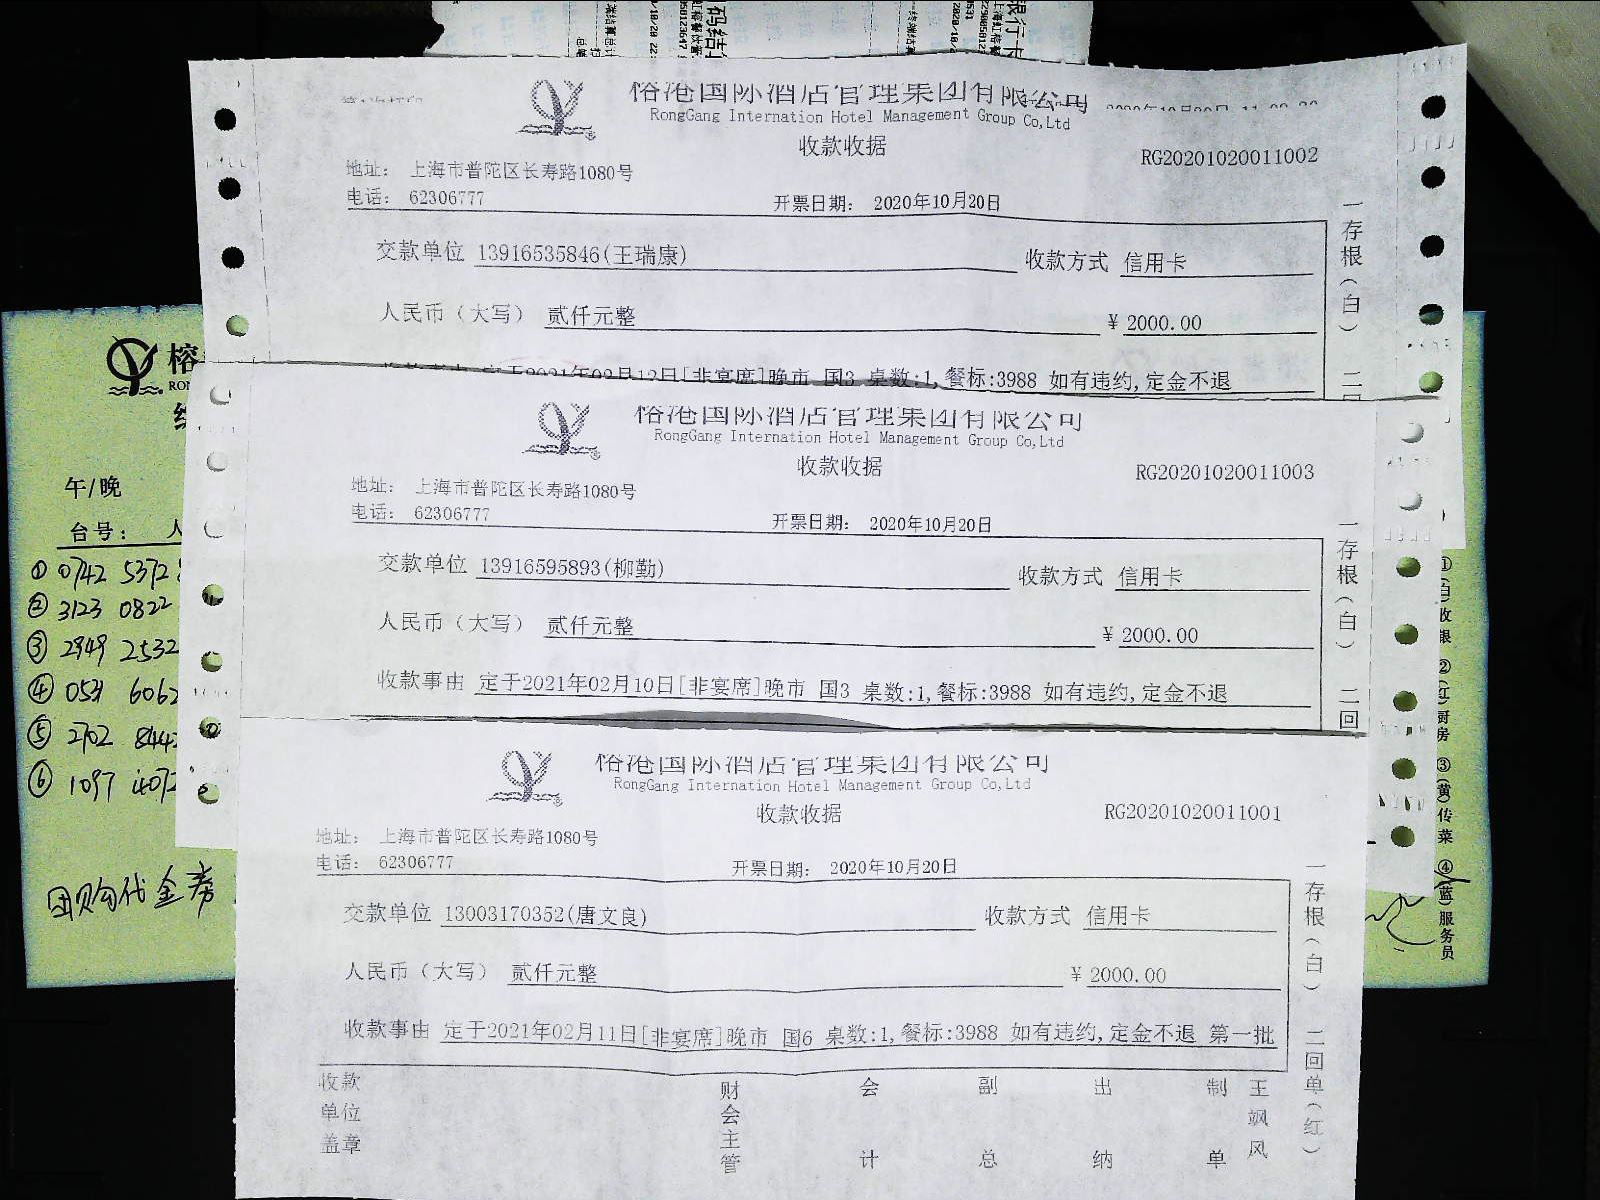 榕港国际酒店管理集团有限公司
RongGang Internation Hotel Management Group Co,Ltd
收款收据
RG20201020011002
地址： 上海市普陀区长寿路1080号
电话： 62306777
开票日期： 2020年10月20日
交款单位 13916535846(王瑞康)
收款方式 信用卡
人民币（大写） 贰仟元整
¥ 2000.00
定于2021年02月12日[非宴席]晚市 国3 桌数:1,餐标:3988 如有违约,定金不退
一存根（白）
二回
榕港国际酒店管理集团有限公司
RongGang Internation Hotel Management Group Co,Ltd
收款收据
RG20201020011003
地址： 上海市普陀区长寿路1080号
电话： 62306777
开票日期： 2020年10月20日
交款单位 13916595893(柳勤)
收款方式 信用卡
人民币（大写） 贰仟元整
¥ 2000.00
收款事由 定于2021年02月10日[非宴席]晚市 国3 桌数:1,餐标:3988 如有违约,定金不退
一存根（白）
二回
榕港国际酒店管理集团有限公司
RongGang Internation Hotel Management Group Co,Ltd
收款收据
RG20201020011001
地址： 上海市普陀区长寿路1080号
电话： 62306777
开票日期： 2020年10月20日
交款单位 13003170352(唐文良)
收款方式 信用卡
人民币（大写） 贰仟元整
¥ 2000.00
收款事由 定于2021年02月11日[非宴席]晚市 国6 桌数:1,餐标:3988 如有违约,定金不退 第一批
一存根（白）
二回单（红）
收款单位盖章
财会主管
会计
副总
出纳
制单
王飒风
榕
午/晚
台号： 人
① 0742 5372
② 3123 0822
③ 2949 2532
④ 0531 6062
⑤ 2702 8442
⑥ 1097 4072
团购代金券
①(白)收银 ②(红)厨房 ③(黄)传菜 ④(蓝)服务员